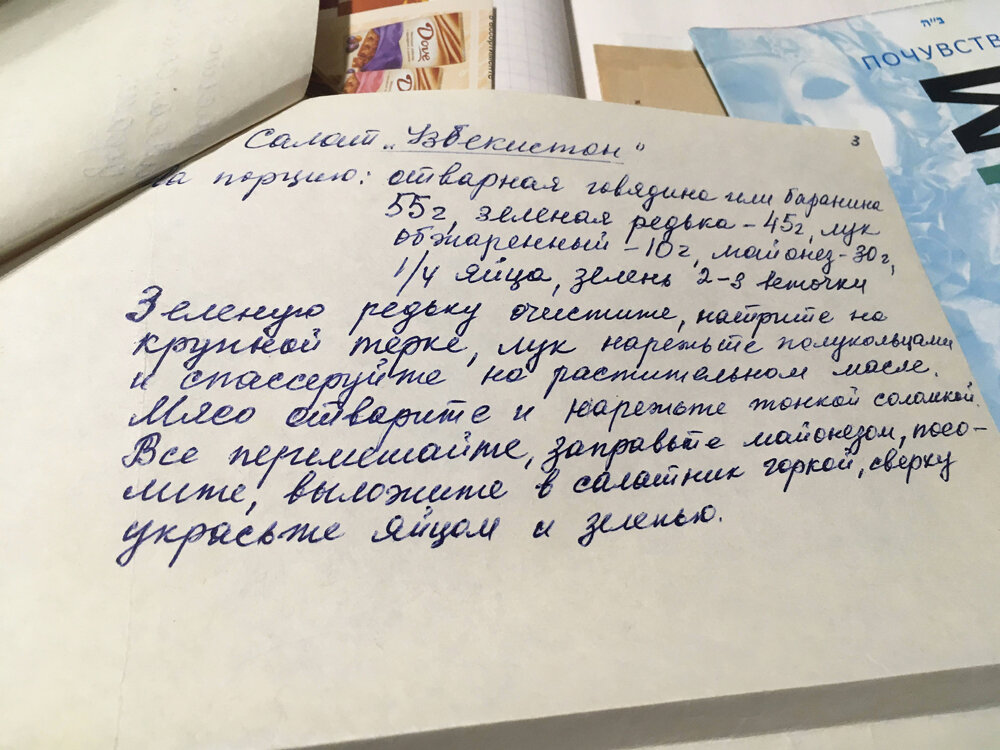 Dove
ב״ה
ПОЧУВСТВ
3
Салат „Узбекистон"
на порцию: отварная говядина или баранина
55г, зеленая редька - 45г, лук
обжаренный - 10г, майонез - 30г,
1/4 яйца, зелень 2-3 веточки
Зеленую редьку очистите, натрите на
крупной терке, лук нарежьте полукольцами
и спассеруйте на растительном масле.
Мясо отварите и нарежьте тонкой соломкой.
Все перемешайте, заправьте майонезом, посо-
лите, выложите в салатник горкой, сверху
украсьте яйцом и зеленью.